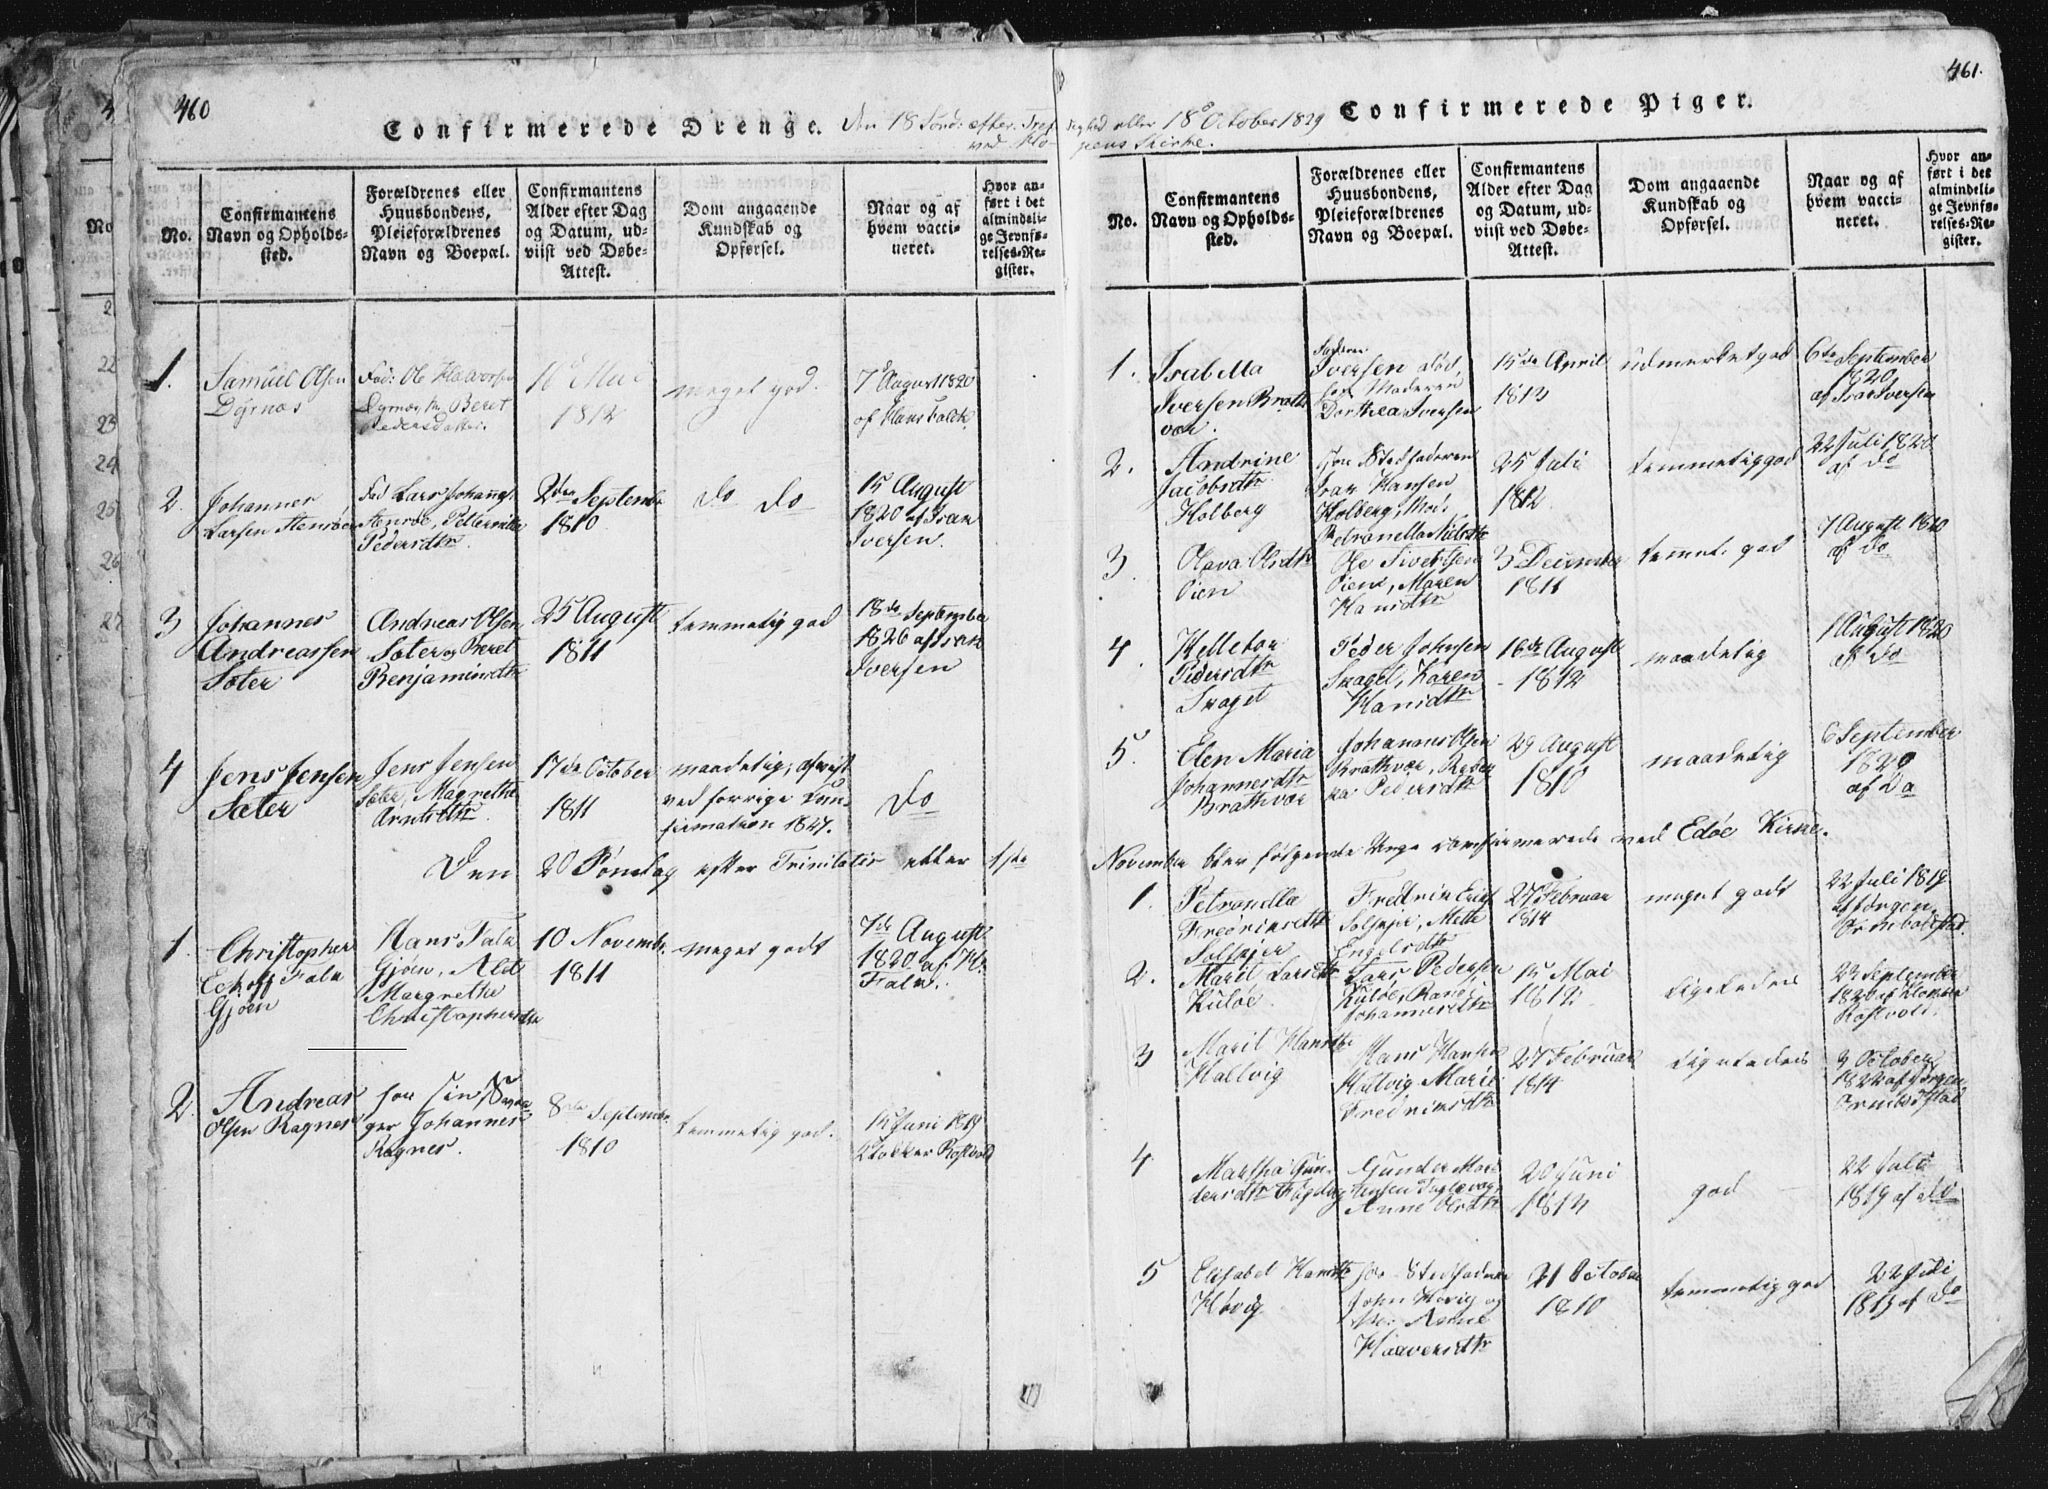 460
Confirmerede Drenge. Den 18 Sønd: efter Tref
ved Ho-
No.
Confirmantens
Navn og Opholds-
sted.
Forældrenes eller
Huusbondens,
Pleieforældrenes
Navn og Boepæl.
Confirmantens
Alder efter Dag
og Datum, ud-
viist ved Døbe-
Attest.
Dom angaaende
Kundskab og
Opførsel.
Naar og af
hvem vacci-
neret.
Hvor an-
ført i det
almindeli-
ge Jevnfø-
relses-Re-
gister.
1.
Samuel Olsen
Dyrnæs
Fad: Ole Halvorsen
Beret
Pedersdatter.
16 Mai
1812
meget god.
7 August 1820
af Hans Falch
2.
Johannes
Larsen Stensøe
Fad Lars Johans:
Pedersdtr.
2den Septembr
1810
do do
15 August
1820 af Ivar
Iversen.
3
Johannes
Andreassen
Sæter
Andreas Olsen
Sæter og Beret
Benjaminsdtr
25 August
1811
temmelig god
18de September
1820 af Ivar
Iversen
4
Jens Jensen
Sæter
Jens Jensen
Sæter, Magrethe
Arntsdtr.
17de October
1811
maadelig, afvist
ved forrige Con-
firmation 1827.
do
Den 20 Søndag efter Trinitatis eller 1ste
1.
Christopher
Eckhoff Falk
Gjøen
Hans Falk
Gjøen, Alet
Margrethe
Christophersdtr
10 Novembr.
1811
meget godt
7de August
1820 af H.
Falk.
2.
Andreas
Olsen Ragnes
hos sin Svo-
ger Johannes
Ragnes.
8de Septembr.
1810
temmelig god.
15 Juni 1819
Klokker Rostvold
461.
tighed eller 18 October 1829
pens Kirke.
Confirmerede Piger.
No.
Confirmantens
Navn og Opholds-
sted.
Forældrenes eller
Huusbondens,
Pleieforældrenes
Navn og Boepæl.
Confirmantens
Alder efter Dag
og Datum, ud-
viist ved Døbe-
Attest.
Dom angaaende
Kundskab og
Opførsel.
Naar og af
hvem vacci-
neret.
Hvor an-
ført i det
almindeli-
ge Jevnfø-
relses-Re-
gister.
1.
Isabella
Iversen Brat-
vær.
Faderen
Iversen død,
hos Moderen
Dorthea Iversen
15de April
1812
udmerket god
6te September
1820
af Ivar Iversen
2.
Andrine
Jacobsdtr
Holberg
hos Stedfaderen
Ivar Hansen
Holberg, Mod:
Petronella Nielsdtr
25 Juli
1812
temmelig god
22 Juli 1820
af do
3
Olava Olsdtr
Øien
Ole Sivertsen
Øien, Maren
Hansdtr
3 December
1811
temmel. god
7 August 1820
af do
4.
Pedersdtr
Skaget
Peder Johnsen
Skaget, Karen
Hansdtr
16de August
1812
maadelig
1 August 1820
af do
5.
Elen Maria
Johannesdtr
Brathvær
Johannes Olsen
Brathvær, Rebek
ka Pedersdtr
29 August
1810
maadelig
6 September
1820
af Do
November blev følgende Unge confirmerede ved Edøe Kirke.
1.
Petronella
Fredriksdtr
Solskjær
Fredrik
Solskjær, Mette
Engelsdtr
27 Februar
1814
meget godt
22 Juli 1819
af Jørgen
Ormbostad.
2.
Marit Larsdtr
Kuløe
Lars Pedersen
Kuløe, Randi
Johannesdtr
15 Mai
1812
ligeledes
22 September
1820 af Klokker
Rostvold.
3
Marit Hansdtr
Hallvig
Hans Hansen
Hallvig Marie
Fredriksdtr
27 Februar
1814
ligeledes
9 October
1822 af Jørgen
Ormbostad
4
Martha Gun-
dersdtr
Gunder Mor
tensen
Anne Olsdtr
20 Juni
1812
god
22 Juli
1819 af do
5
Elisabet Hansdtr
Høvig
hos Stedfaderen
John Høvig og
Halversdtr
21 October
1810
temmelig god
22 Juli
1819 af do